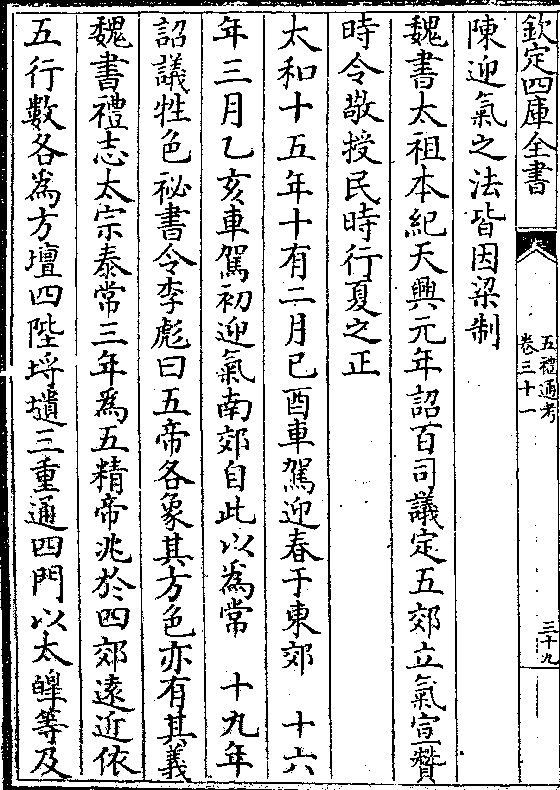 欽定四庫全書
五禮通考
卷三十一
三十九
陳迎氣之法皆因梁制
魏書太祖本紀天興元年詔百司議定五郊立氣宣贊
時令敬授民時行夏之正
太和十五年十有二月己酉車駕迎春于東郊　十六
年三月乙亥車駕初迎氣南郊自此以為常　十九年
詔議牲色祕書令李彪曰五帝各象其方色亦有其義
魏書禮志太宗泰常三年為五精帝兆於四郊遠近依
五行數各為方壇四陛埒壝三重通四門以太皥等及